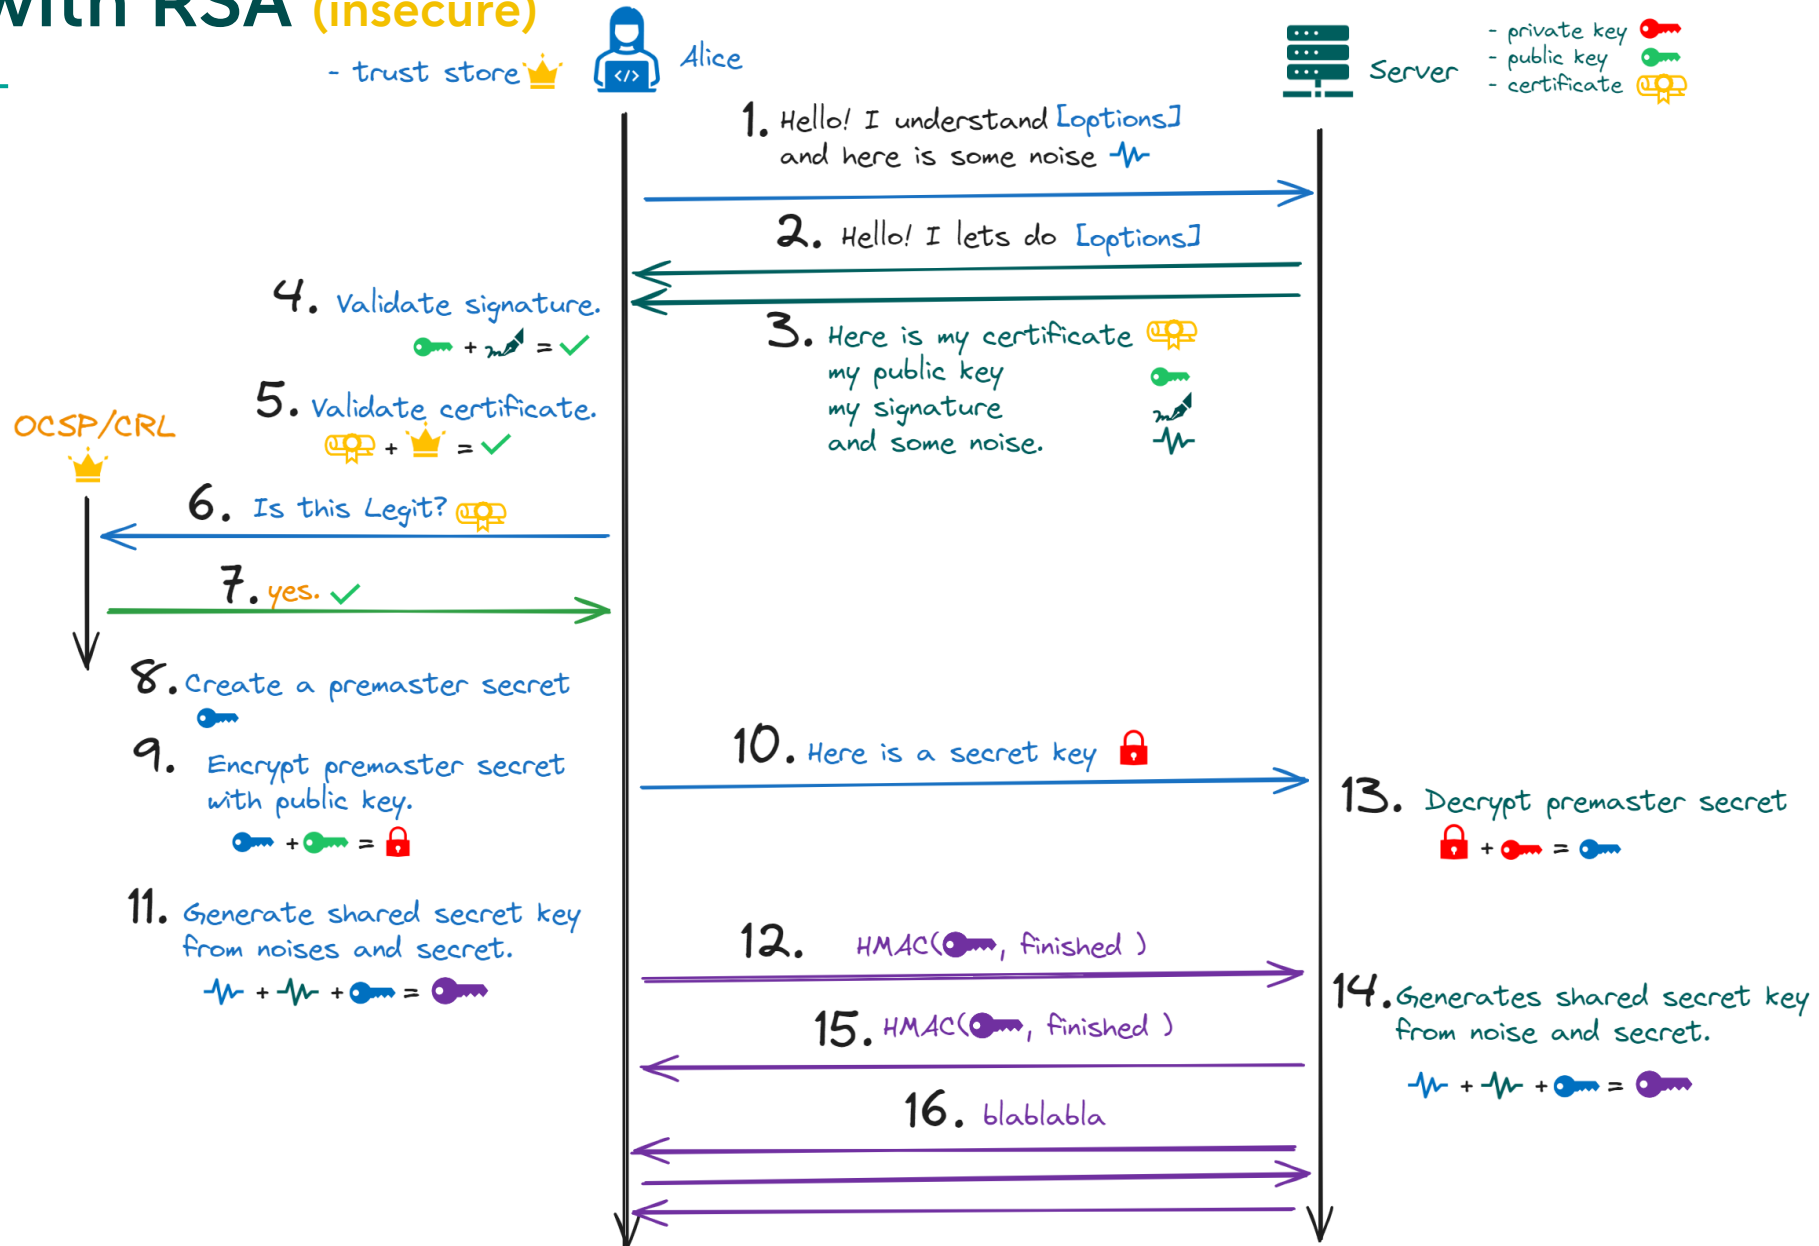 with RSA (insecure)
- trust store
Alice
Server
- private key
- public key
- certificate
1. Hello! I understand [options]
and here is some noise
2. Hello! I lets do [options]
3. Here is my certificate
my public key
my signature
and some noise.
4. Validate signature.
+ =
5. Validate certificate.
+ =
OCSP/CRL
6. Is this Legit?
7. yes.
8. Create a premaster secret
9. Encrypt premaster secret
with public key.
+ =
10. Here is a secret key
11. Generate shared secret key
from noises and secret.
+ + =
12. HMAC( , finished )
13. Decrypt premaster secret
+ =
14. Generates shared secret key
from noise and secret.
+ + =
15. HMAC( , finished )
16. blablabla